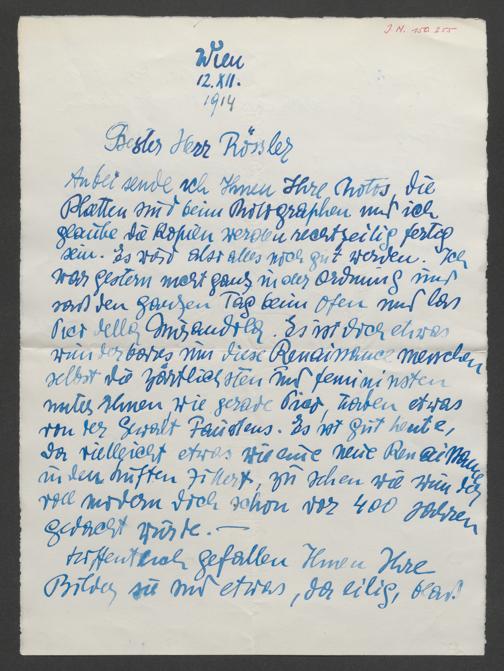 J.N. 150.255
Wien
12.XII.
1914
Bester Herr Rössler
Anbei sende ich Ihnen Ihre Photos, die
Platten sind beim Photographen und ich
glaube die Kopien werden rechtzeitig fertig
sein. Es wird also alles noch gut werden. Ich
war gestern nicht ganz in der Ordnung und
saß den ganzen Tag beim Ofen und las
Pico della Mirandola. Es ist doch etwas
wunderbares um diese Renaissance menschen
selbst die zärtlichsten und femininsten
unter Ihnen, wie gerade Pico, haben etwas
von der Gewalt Faustens. Es ist gut heute,
da vielleicht etwas wie eine neue Renaissance
in den Lüften zittert, zu sehen wie wunder
voll modern doch schon vor 400 Jahren
gedacht wurde. —
Hoffentlich gefallen Ihnen Ihre
Bilder sie sind etwas, da eilig,